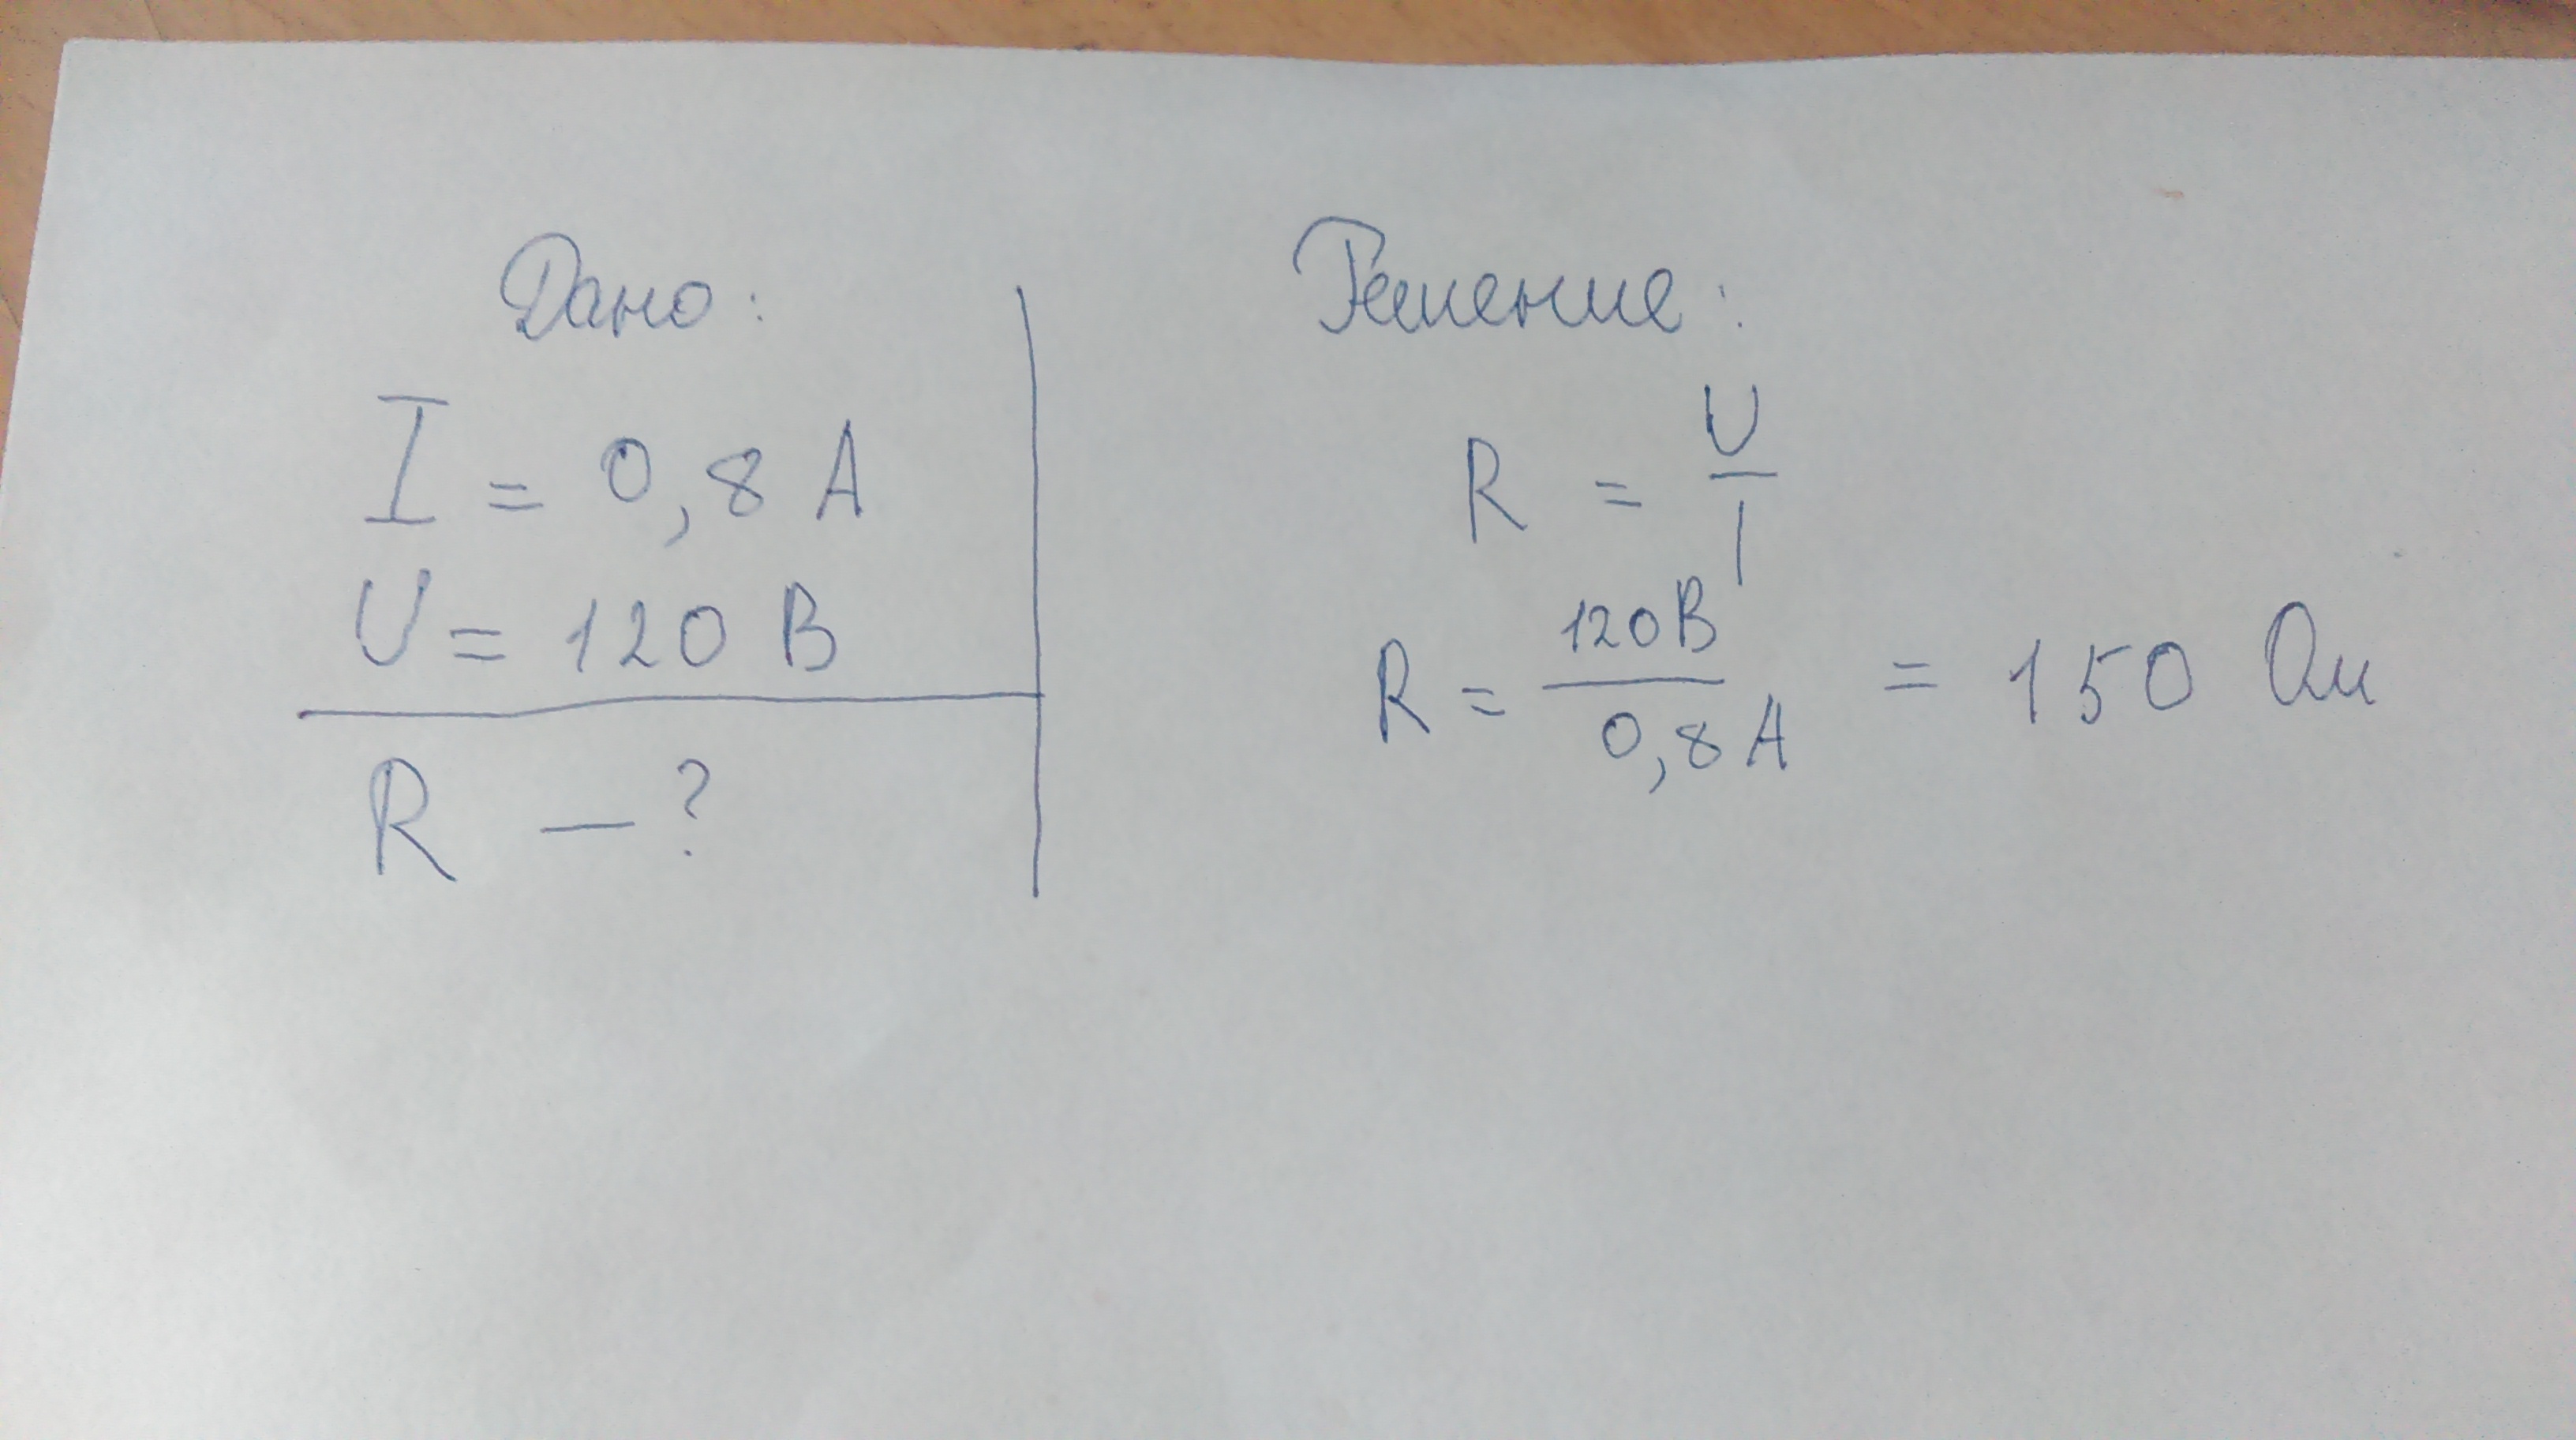 Дано:
I = 0,8 А
U = 120 В
R — ?
Решение:
R = U/I
R = 120В/0,8А = 150 Ом